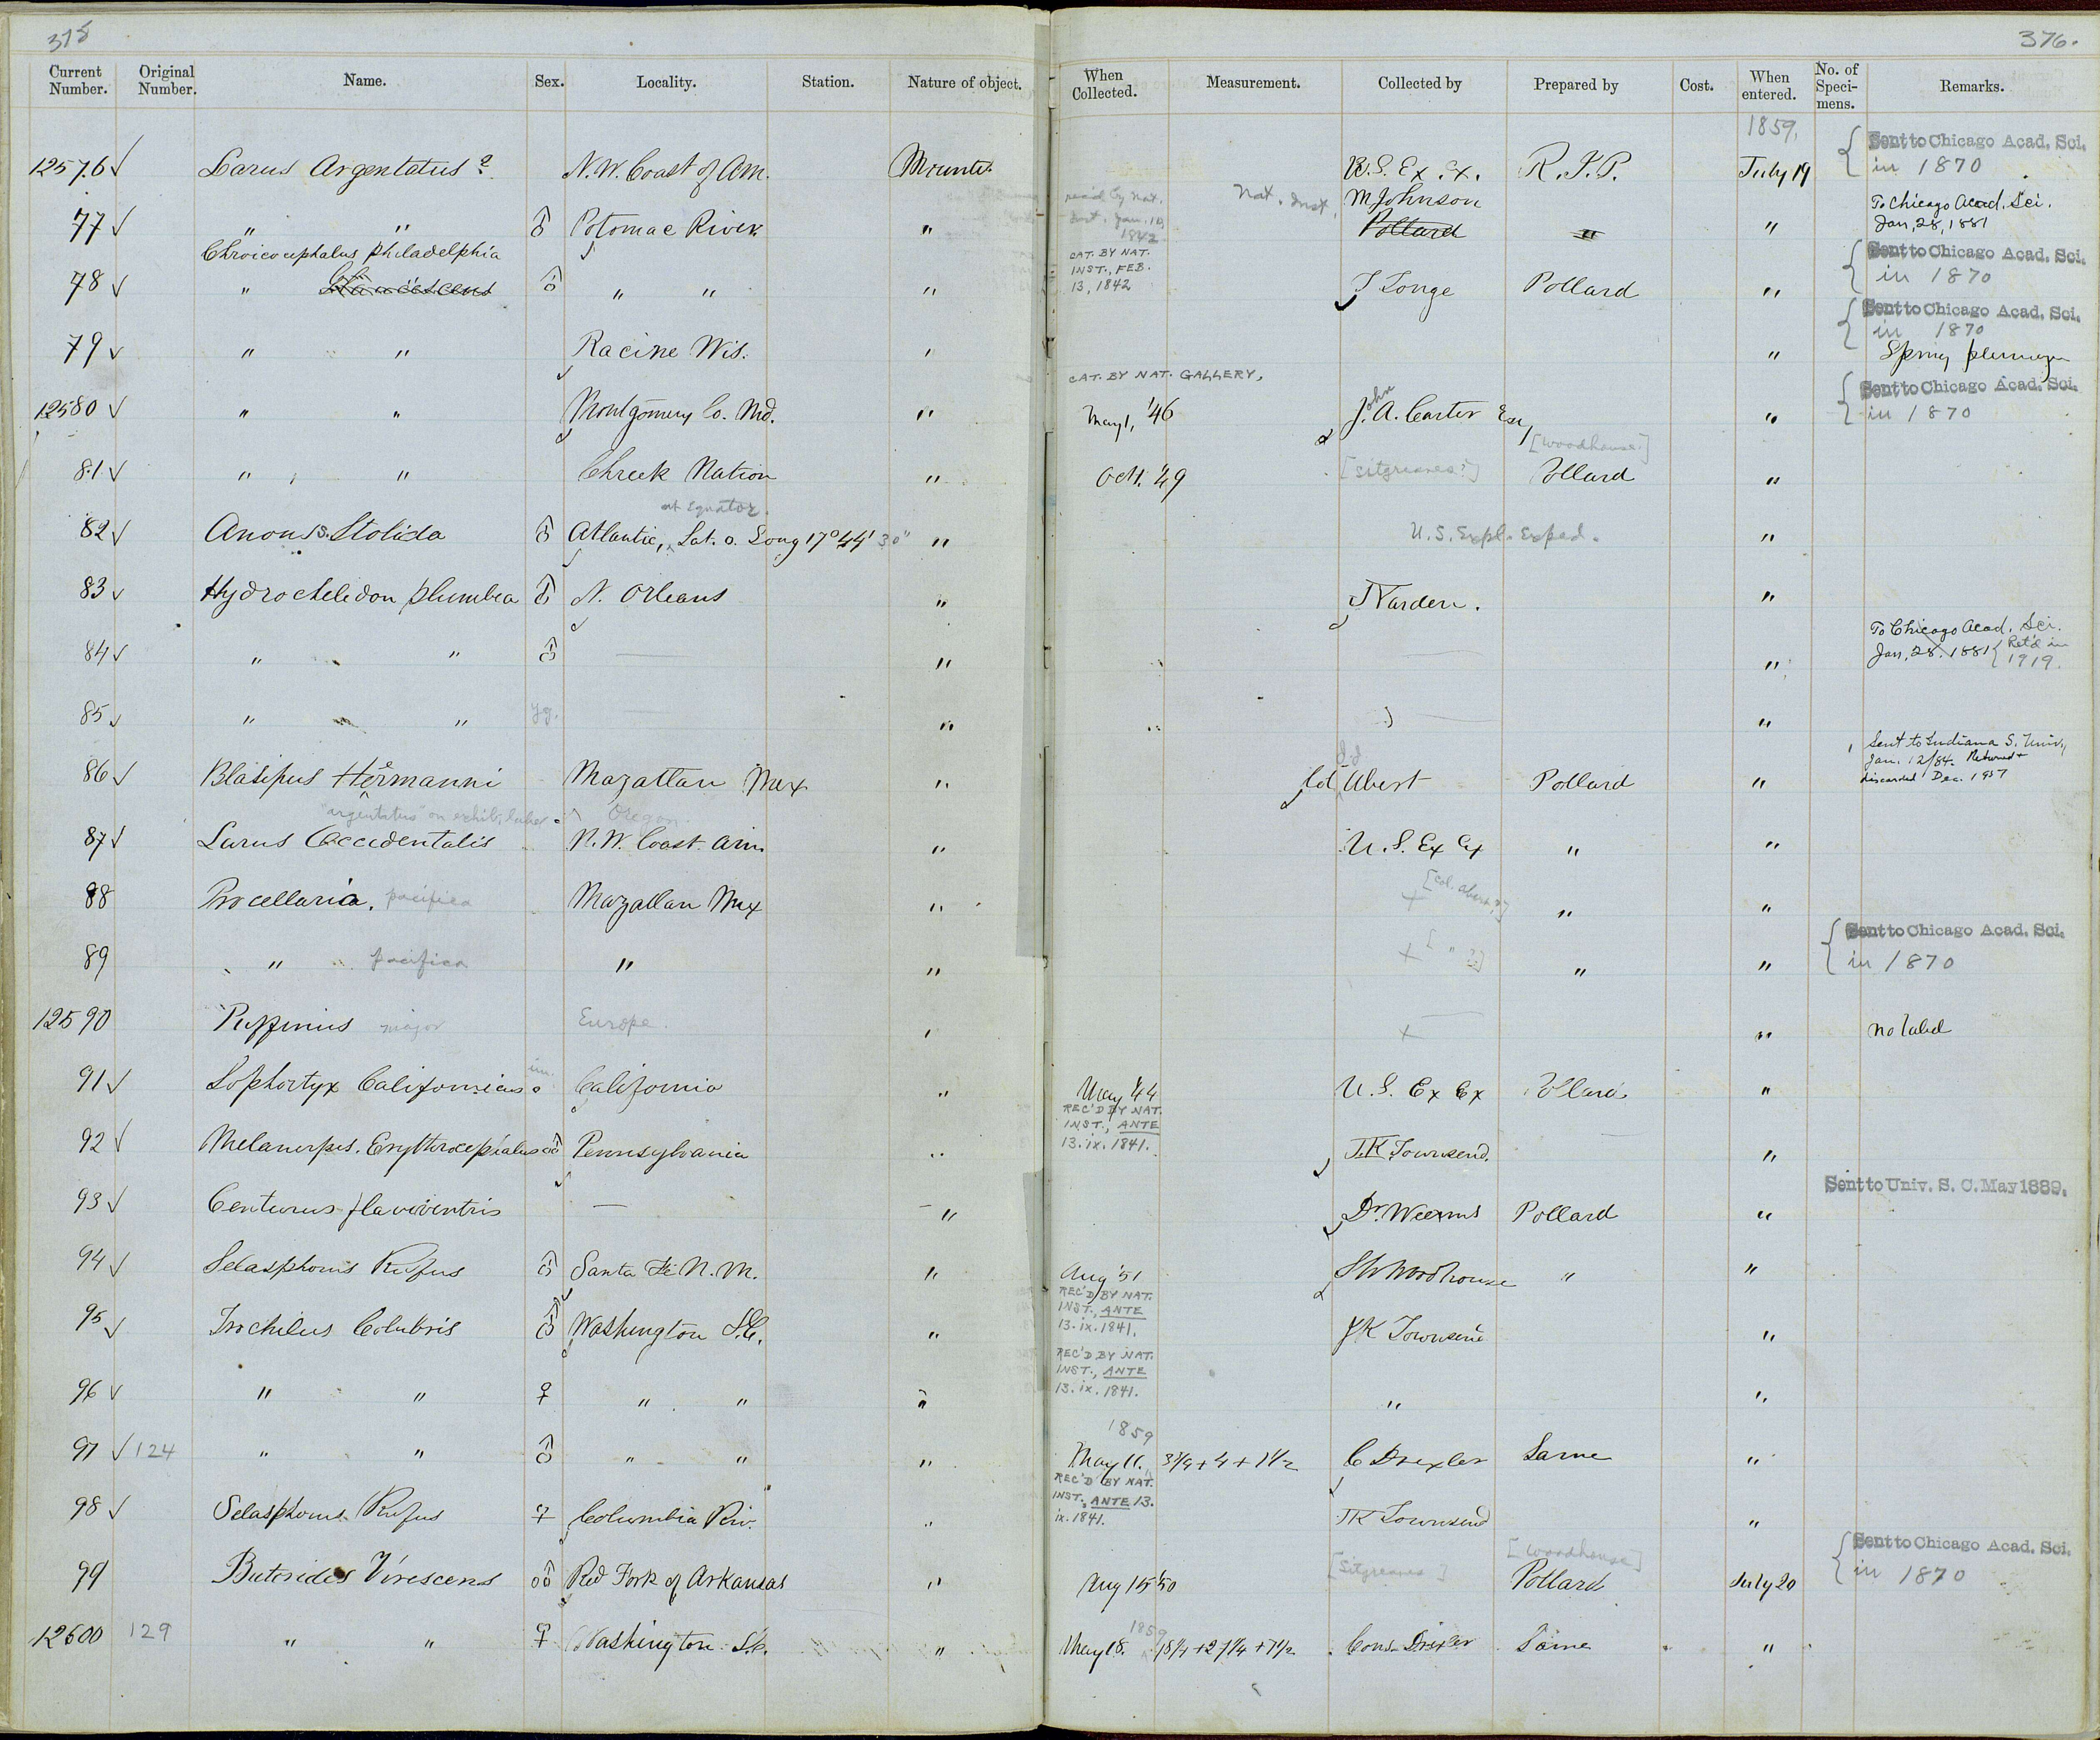 375
376.
Current Number. Original Number. Name. Sex. Locality. Station. Nature of object. When Collected. Measurement. Collected by Prepared by Cost. When entered. No. of Speci-mens. Remarks.
1859.
12576 ✓ Larus Argentatus ? N. W. Coast of Am. Mounted U. S. Ex. Ex. R. T. P. July 19 { Sent to Chicago Acad. Sci. in 1870
77 ✓ " " ♂ Potomac River " rec'd by Nat. Inst. Jan. 10, 1842 Nat. Inst. M Johnson Pollard " " To Chicago Acad. Sci. Jan, 28, 1881
Chroicocephalus philadelphia
78 ✓ " ♂ " " " CAT. BY NAT. INST., FEB. 13, 1842 J Longe Pollard " { Sent to Chicago Acad. Sci. in 1870
79 ✓ " " Racine Wis. " " { Sent to Chicago Acad. Sci. in 1870
Spring plumage
CAT. BY NAT. GALLERY,
12580 ✓ " " Montgomery Co. Md. " May 1, '46 John J. A. Carter Esq " { Sent to Chicago Acad. Sci. in 1870
81 ✓ " " Chreek Nation " Oct. '49 [Sitgreaves?] [Woodhouse?] Pollard "
at Equator.
82 ✓ Anous Stolida ♂ Atlantic, Lat. 0. Long 17° 44' 30" " U. S. Expl. Exped. "
83 ✓ Hydrochelidon plumbea ♂ N. Orleans " "
84 ✓ " " ♂ — " — " To Chicago Acad. Sci. Jan, 28. 1881 { Ret'd in 1919.
85 ✓ " " yg. — " — "
86 ✓ Blasipus Hermanni Mazatlan Mex " Col Abert Pollard " Sent to Indiana S. Univ., Jan. 12/84. Returned + discarded Dec. 1957
"argentatus" on exhib. label Oregon.
87 ✓ Larus Occidentalis N. W. Coast Am. " U. S. Ex Ex " "
88 Procellaria. pacifica Mazatlan Mex " + [Col. Abert?] " "
89 " pacifica " " + [ " ?] " " { Sent to Chicago Acad. Sci. in 1870
12590 Puffinus major Europe. " + — " No label
91 ✓ Lophortyx Californicus im. California " May '44 U. S. Ex Ex Pollard "
92 ✓ Melanerpes. Erythrocephalus ♂ Pennsylvania " REC'D BY NAT. INST., ANTE 13. ix. 1841. J. K Townsend. "
93 ✓ Centurus flaviventris — " Dr. Weems Pollard " Sent to Univ. S. C. May 1889.
94 ✓ Selasphorus Rufus ♂ Santa Fe N. M. " Aug '51 S W Woodhouse " "
95 ✓ Trochilus Colubris ♂ Washington D.C. " REC'D BY NAT. INST., ANTE 13. ix. 1841. J K Townsend "
96 ✓ " " ♀ " " " REC'D BY NAT. INST., ANTE 13. ix. 1841. " "
1859
97 ✓ 124 " " ♂ " " " May 11. 3 3/4 + 4 + 1 1/2 C Drexler Same "
98 ✓ Selasphorus Rufus ♀ Columbia Riv. " REC'D BY NAT. INST., ANTE 13. ix. 1841. J K Townsend "
99 Butorides Virescens ♂ Red Fork of Arkansas " Aug 15 '50 [Sitgreaves] [Woodhouse] Pollard July 20 { Sent to Chicago Acad. Sci. in 1870
1859
12600 129 " " ♀ Washington D.C. " May 18. Cons. Drexler Same "